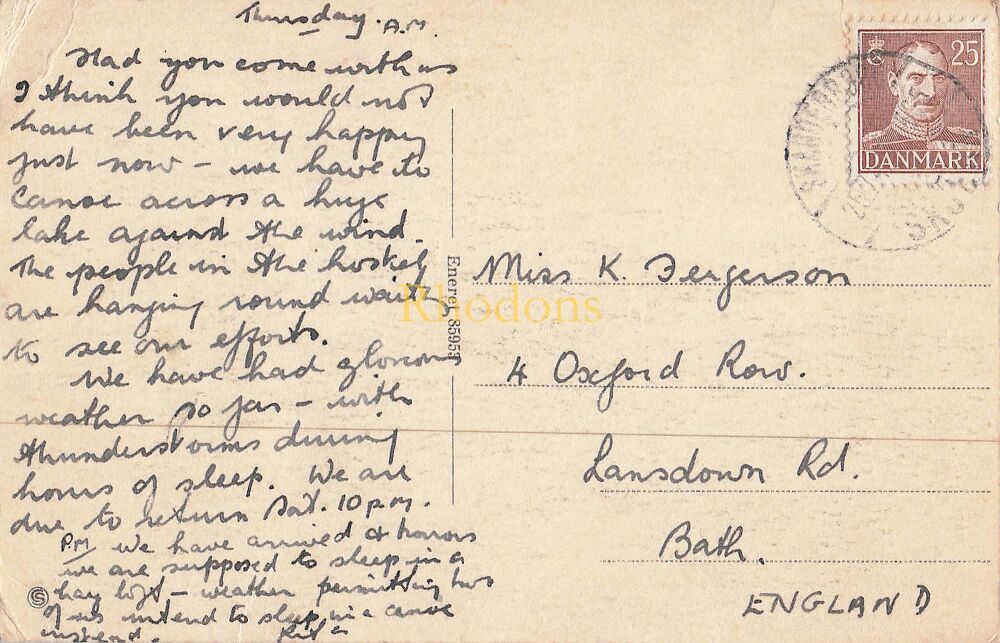 Thursday. A.M.
Had you come with us
I think you would not
have been very happy
just now - we have to
canoe across a huge
lake against the wind.
The people in the hostel
are hanging round waiting
to see our efforts.
We have had glorious
weather so far - with
thunderstorms during
hours of sleep. We are
due to return Sat. 10 p.m.
P.M. We have arrived & horrors
we are supposed to sleep in a
hay loft - weather permitting two
of us intend to sleep in a canoe
instead.
Eneret 85953
25
DANMARK
Miss K. Fergerson
4 Oxford Row.
Lansdown Rd.
Bath.
ENGLAND
Rhodons